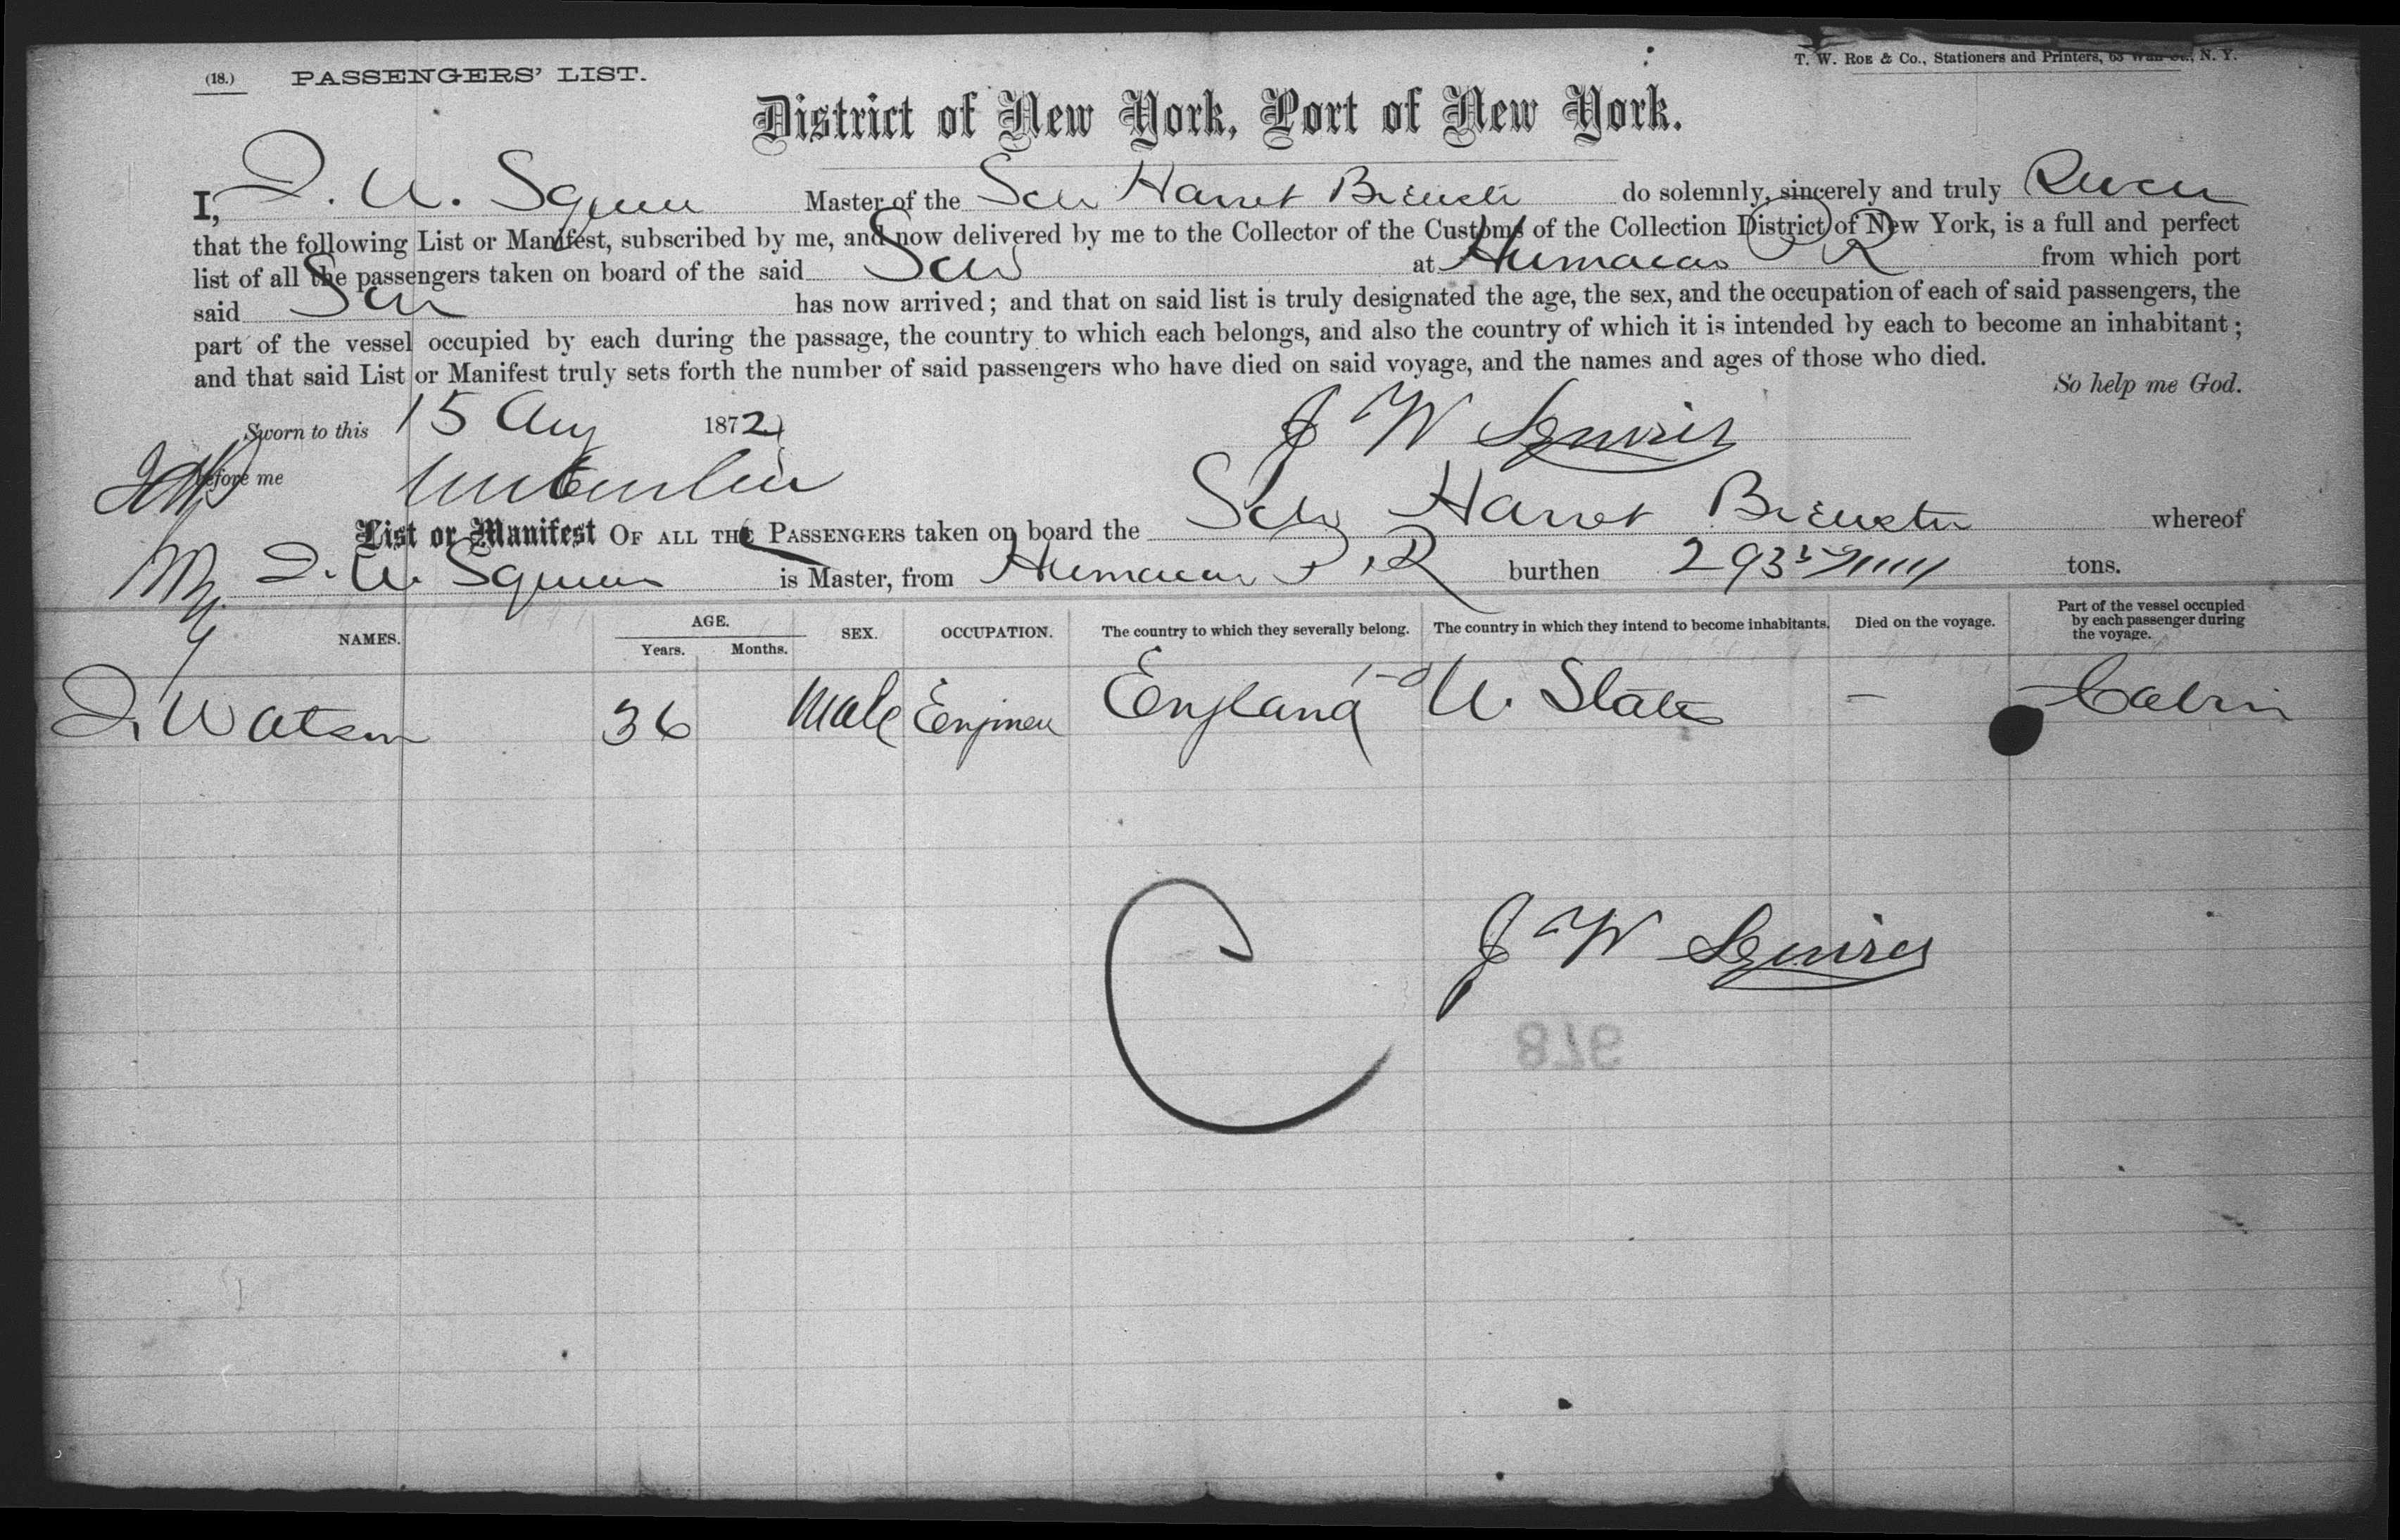 (18.) PASSENGERS' LIST.
T. W. ROE & Co., Stationers and Printers, 63 Wall St., N. Y.
District of New York, Port of New York.
I, J. W. Squires Master of the Sch Harriet Brewster do solemnly, sincerely and truly Swear
that the following List or Manifest, subscribed by me, and now delivered by me to the Collector of the Customs of the Collection District of New York, is a full and perfect
list of all the passengers taken on board of the said Sch at Humacao P R from which port
said Sch has now arrived; and that on said list is truly designated the age, the sex, and the occupation of each of said passengers, the
part of the vessel occupied by each during the passage, the country to which each belongs, and also the country of which it is intended by each to become an inhabitant;
and that said List or Manifest truly sets forth the number of said passengers who have died on said voyage, and the names and ages of those who died.
So help me God.
Sworn to this 15 Aug 1872
J W Squires
before me
List or Manifest OF ALL THE PASSENGERS taken on board the Sch Harriet Brewster whereof
J. W. Squires is Master, from Humacao P. R burthen 293 tons.
NAMES. AGE. Years. Months. SEX. OCCUPATION. The country to which they severally belong. The country in which they intend to become inhabitants. Died on the voyage. Part of the vessel occupied by each passenger during the voyage.
J. Watson 36 Male Engineer England U. States – Cabin
C
J W Squires
978